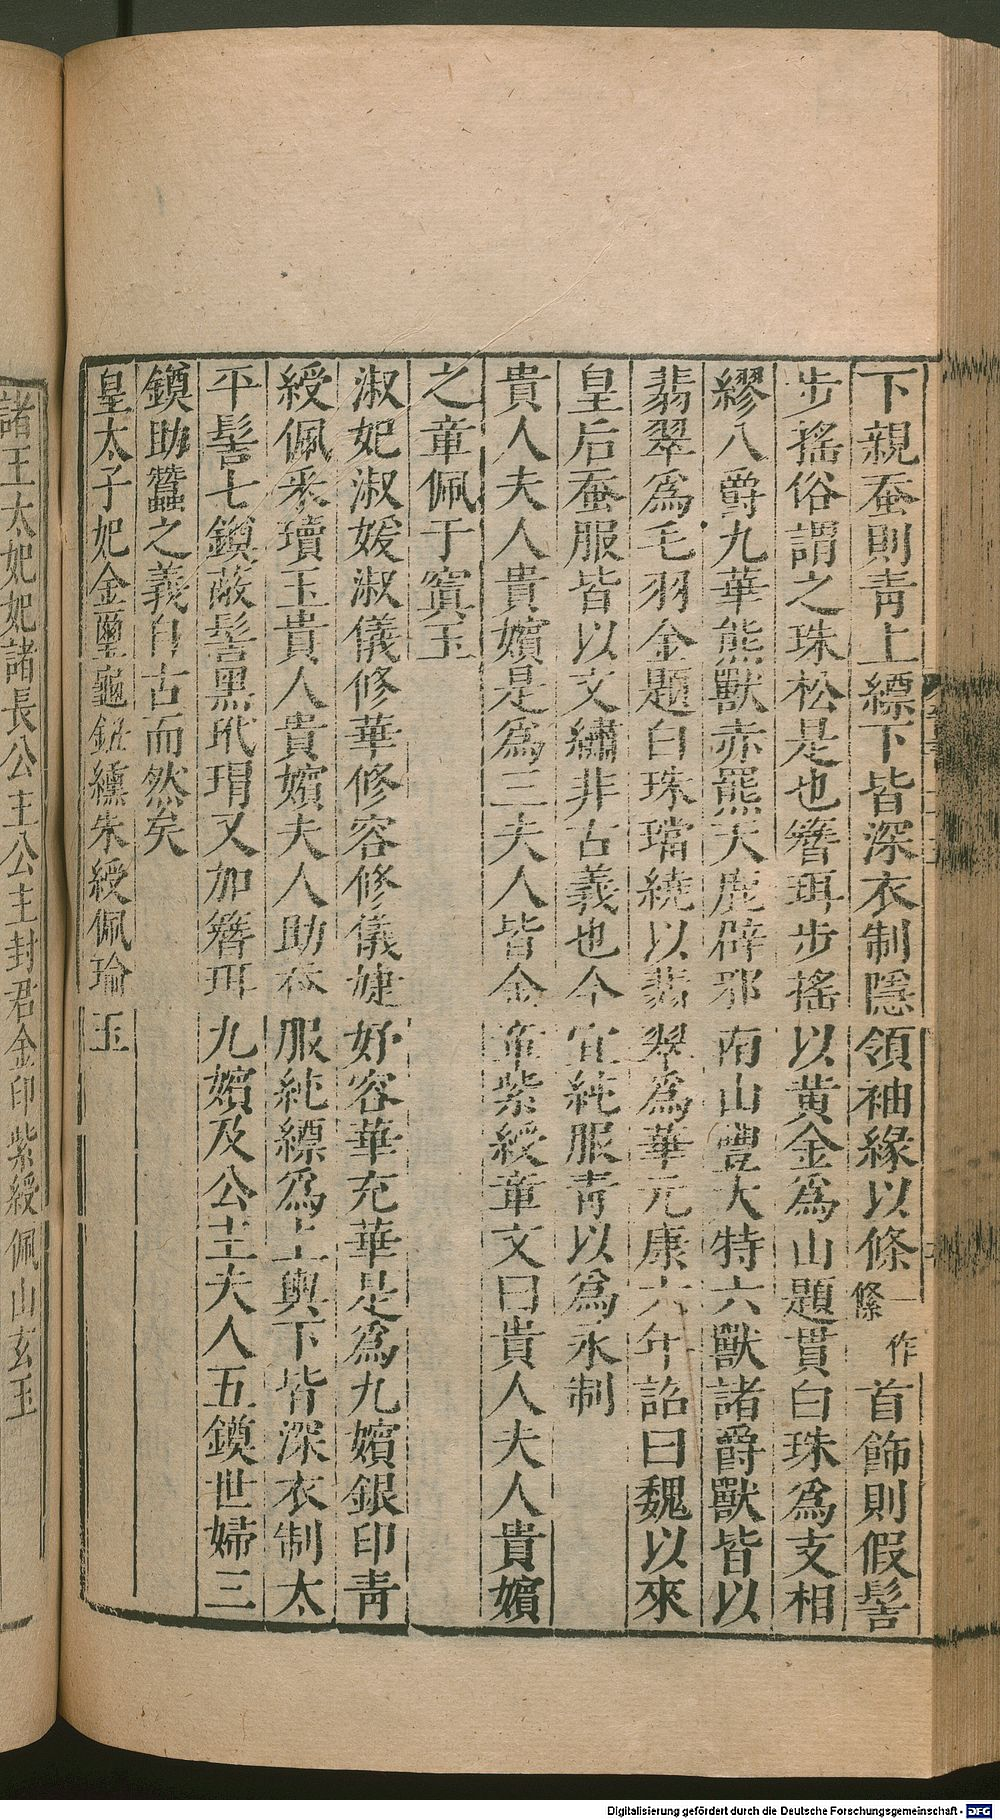 下親蚕則靑上縹下皆深衣制隱領袖緣以條一作絛首飾則假髻
步搖俗謂之珠松是也簪珥步搖以黃金爲山題貫白珠爲支相
繆八爵九華熊獸赤羆天鹿辟邪南山豐大特六獸諸爵獸皆以
翡翠爲毛羽金題白珠璫繞以翡翠爲華元康六年詔曰魏以來
皇后蚕服皆以文繡非古義也今宜純服靑以爲永制
貴人夫人貴嬪是爲三夫人皆金章紫綬章文曰貴人夫人貴嬪
之章佩于窴玉
淑妃淑媛淑儀修華修容修儀婕妤容華充華是爲九嬪銀印靑
綬佩采瓄玉貴人貴嬪夫人助蚕服純縹爲上與下皆深衣制太
平髻七鐷蔽髻黑玳瑁又加簪珥九嬪及公主夫人五鐷世婦三
鐷助蠶之義自古而然矣
皇太子妃金璽龜鈕纁朱綬佩瑜玉
諸王太妃妃諸長公主公主封君金印紫綬佩山玄玉
Digitalisierung gefördert durch die Deutsche Forschungsgemeinschaft - DFG